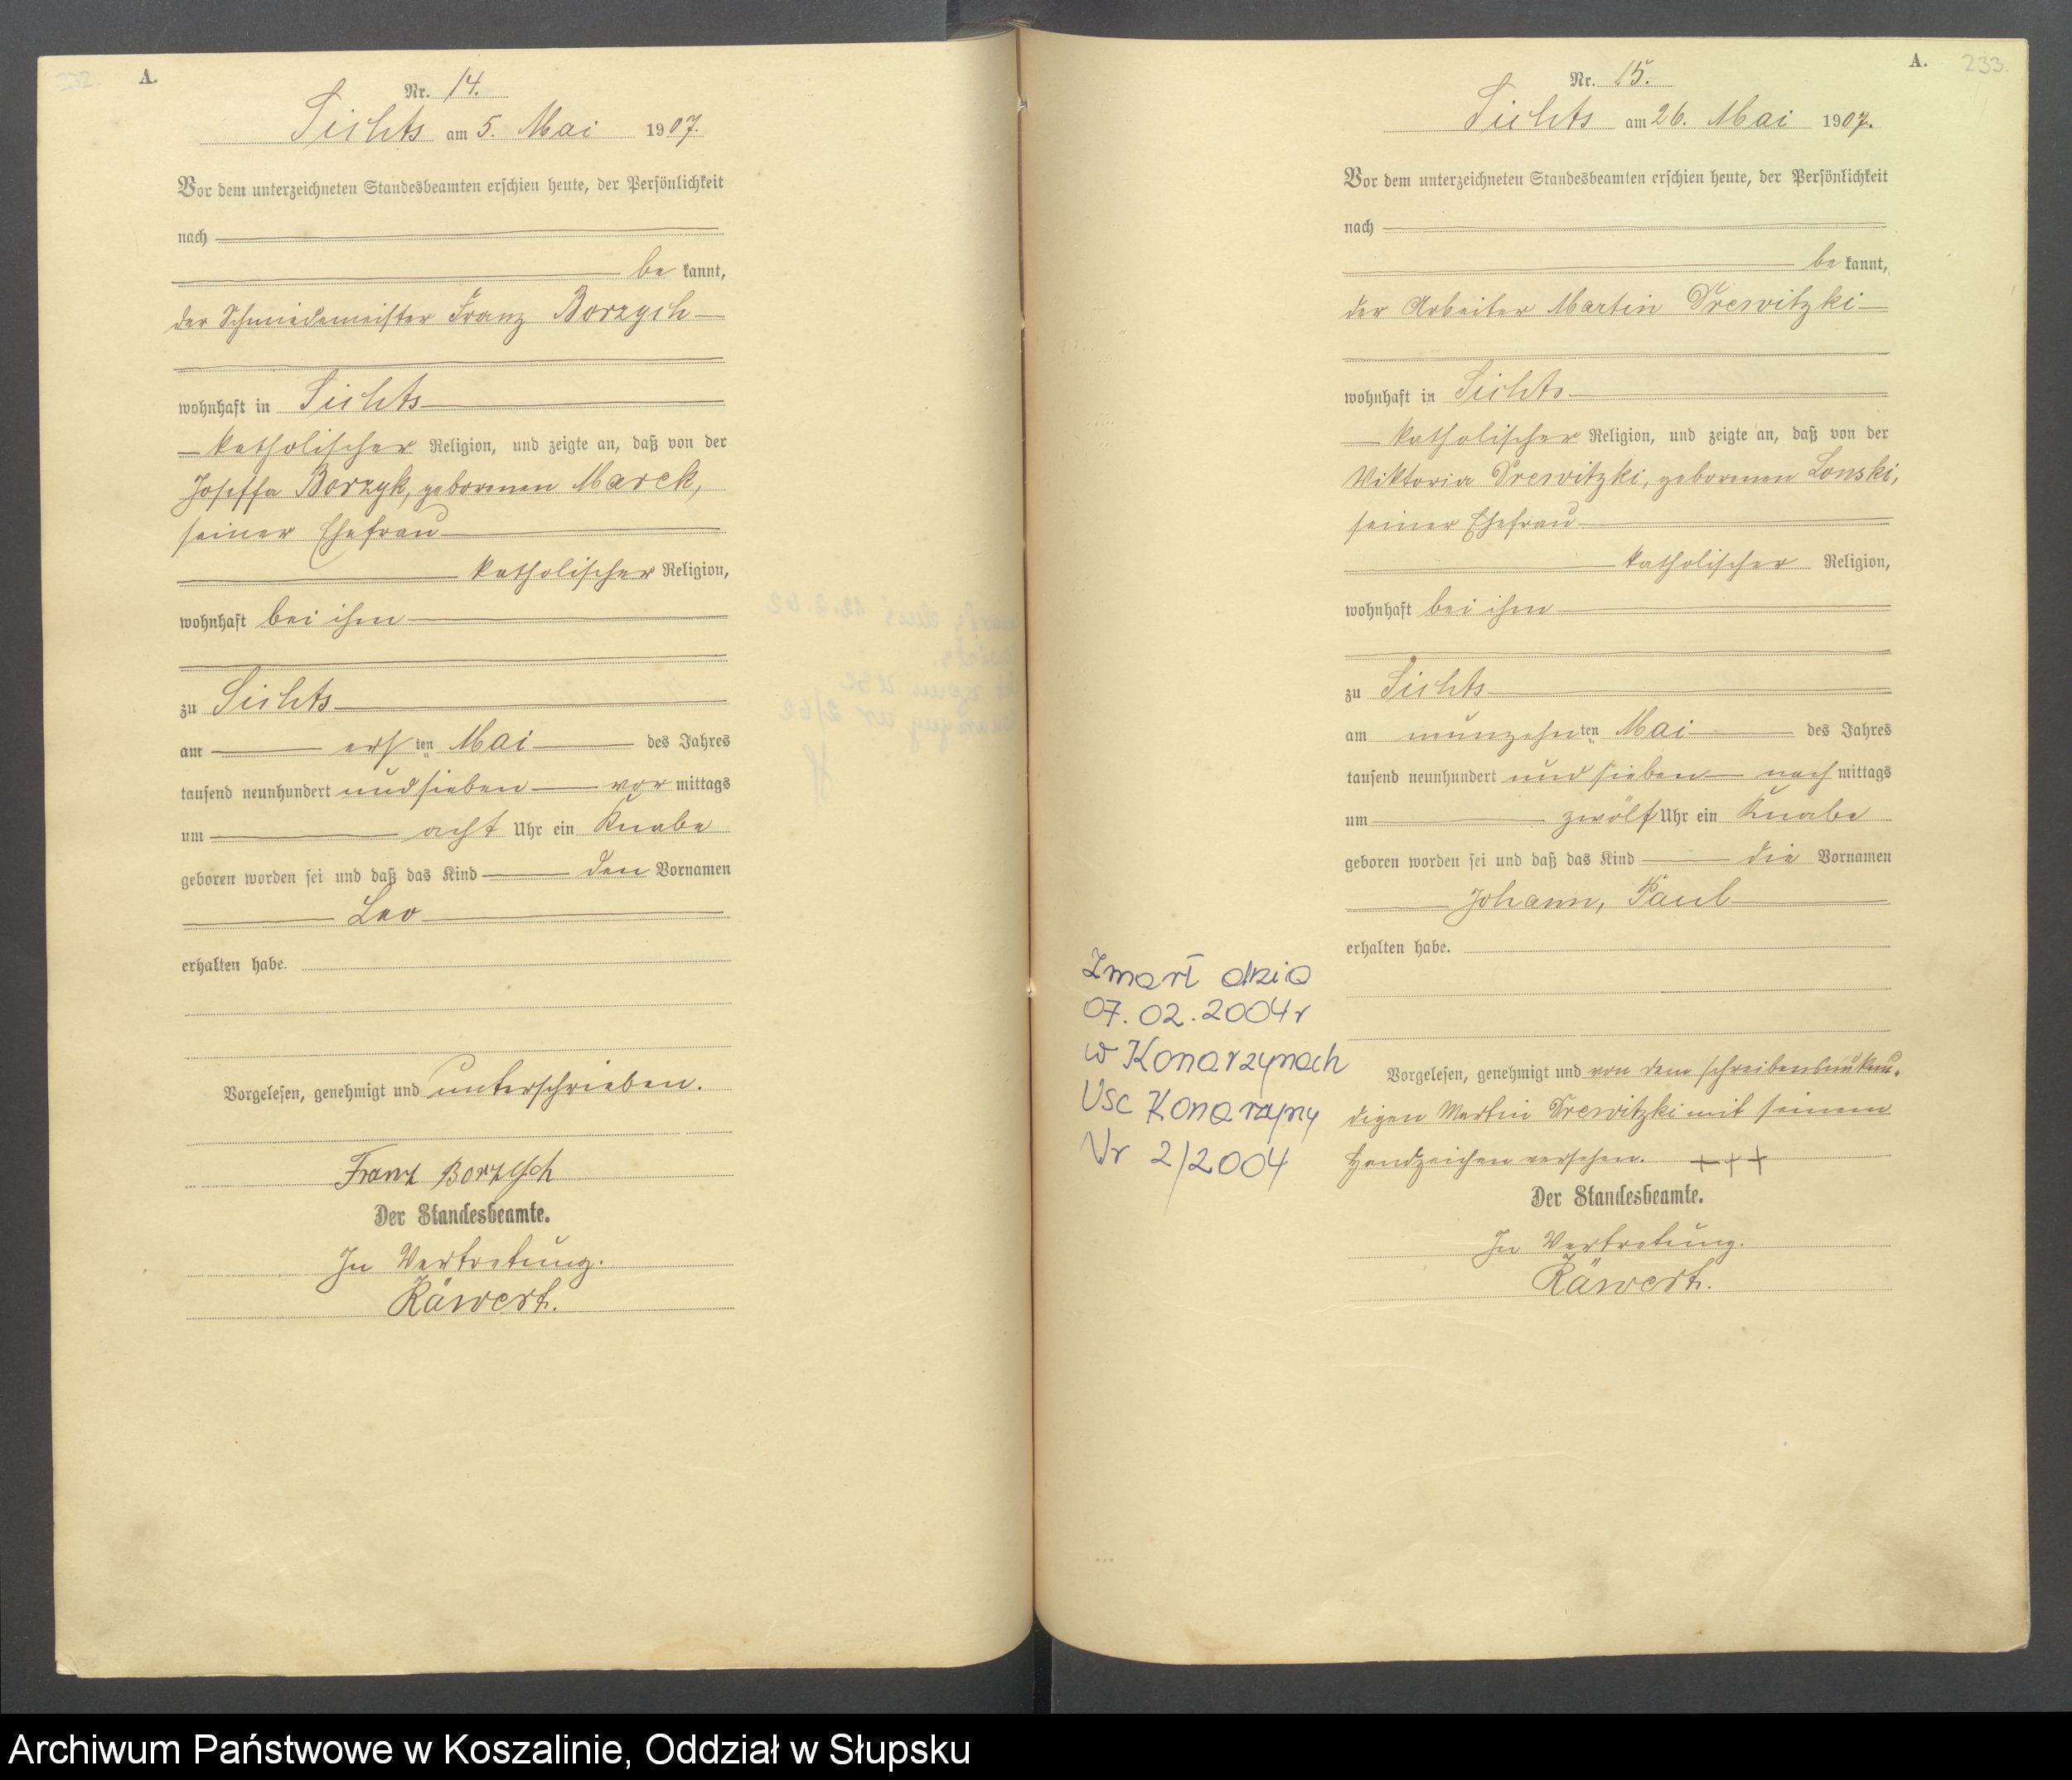 232.
A.
Nr. 14.
Sichts am 5. Mai 1907.
Vor dem unterzeichneten Standesbeamten erschien heute, der Persönlichkeit
nach
be kannt,
der Schmiedemeister Franz Borzych
wohnhaft in Sichts
katholischer Religion, und zeigte an, daß von der
Joseffa Borzyk, geborenen Marck,
seiner Ehefrau
katholischer Religion,
wohnhaft bei ihm
zu Sichts
am ersten Mai des Jahres
tausend neunhundert und sieben vor mittags
um acht Uhr ein Knabe
geboren worden sei und daß das Kind den Vornamen
Leo
erhalten habe.
Vorgelesen, genehmigt und unterschrieben.
Franz Borzych
Der Standesbeamte.
In Vertretung.
Räwert.
A.
233.
Nr. 15.
Sichts am 26. Mai 1907.
Vor dem unterzeichneten Standesbeamten erschien heute, der Persönlichkeit
nach
be kannt,
der Arbeiter Martin Drewitzki
wohnhaft in Sichts
katholischer Religion, und zeigte an, daß von der
Viktoria Drewitzki, geborenen Lonski,
seiner Ehefrau
katholischer Religion,
wohnhaft bei ihm
zu Sichts
am neunzehnten Mai des Jahres
tausend neunhundert und sieben nach mittags
um zwölf Uhr ein Knabe
geboren worden sei und daß das Kind die Vornamen
Johann, Paul
erhalten habe.
Vorgelesen, genehmigt und von dem schreibensunkun-
digen Martin Drewitzki mit seinem
Handzeichen versehen. +++
Der Standesbeamte.
In Vertretung.
Räwert.
Zmarł dnia
07.02.2004r
w Konarzynach
USC Konarzyny
Nr 2/2004
Archiwum Państwowe w Koszalinie, Oddział w Słupsku